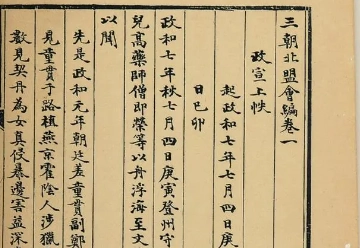 三朝北盟會編卷一
政宣上帙
起政和七年七月四日庚
日己卯
政和七年秋七月四日庚寅登州守
兒高藥師僧即榮等以舟浮海至文
以聞
先是政和元年朝廷差童貫副鄭
見童貫于路植燕京霍陰人涉獵
數見契丹為女真侵暴邊害益深